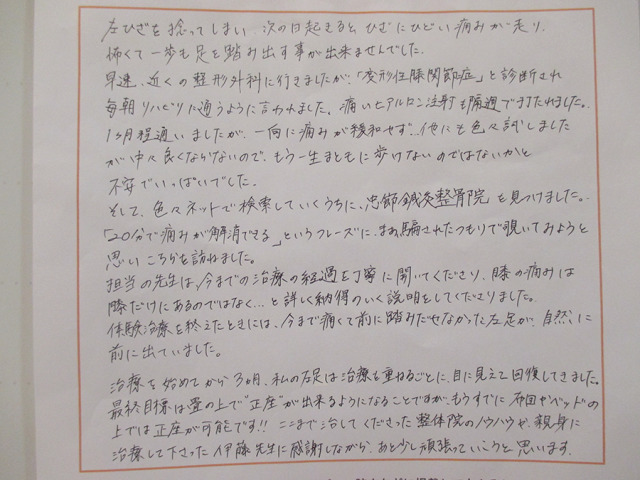 左ひざを捻ってしまい、次の日起きると、ひざにひどい痛みが走り、
怖くて一歩も足を踏み出す事が出来ませんでした。
早速、近くの整形外科に行きましたが、「変形性膝関節症」と診断され
毎朝リハビリに通うように言われました。痛いヒアルロン注射も隔週で打たれました。
1ヶ月程通いましたが、一向に痛みが緩和せず…他にも色々試しました
が中々良くならないので、もう一生まともに歩けないのではないかと
不安でいっぱいでした。
そして、色々ネットで検索していくうちに、忠節鍼灸整骨院を見つけました。
「20分で痛みが解消できる」というフレーズに、まあ騙されたつもりで覗いてみようと
思いこちらを訪ねました。
担当の先生は、今までの治療の経過を丁寧に聞いてくださり、膝の痛みは
膝だけにあるのではなく…と詳しく納得のいく説明をしてくださりました。
体験治療を終えたときには、今まで痛くて前に踏みだせなかった左足が、自然に
前に出ていました。
治療を始めてから3ヵ月、私の左足は治療を重ねるごとに、目に見えて回復してきました。
最終目標は畳の上で"正座"が出来るようになることですが、もうすでに布団やベッドの
上では正座が可能です!! ここまで治してくださった整体院のノウハウや、親身に
治療して下さった伊藤先生に感謝しながら、あと少し頑張っていこうと思います。